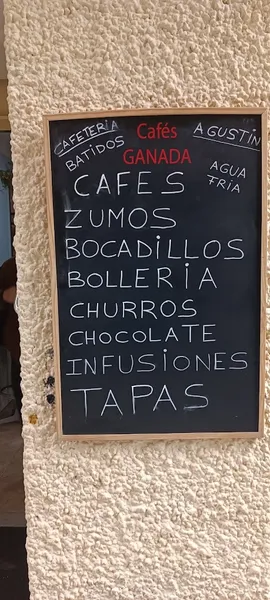 CAFETERiA Cafés AGUSTiN
BATiDOS GANADA AGUA
FRIA
CAFES
ZUMOS
BOCADiLLOS
BOLLERiA
CHURROS
CHOCOLATE
INFUSiONES
TAPAS